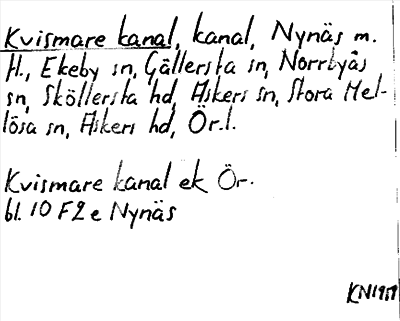 Kvismare kanal, kanal, Nynäs m.
fl., Ekeby sn, Gällersta sn, Norrbyås
sn, Sköllersta hd, Askers sn, Stora Mel-
lösa sn, Askers hd, Ör.l.
Kvismare kanal ek Ör.
bl. 10 F2e Nynäs